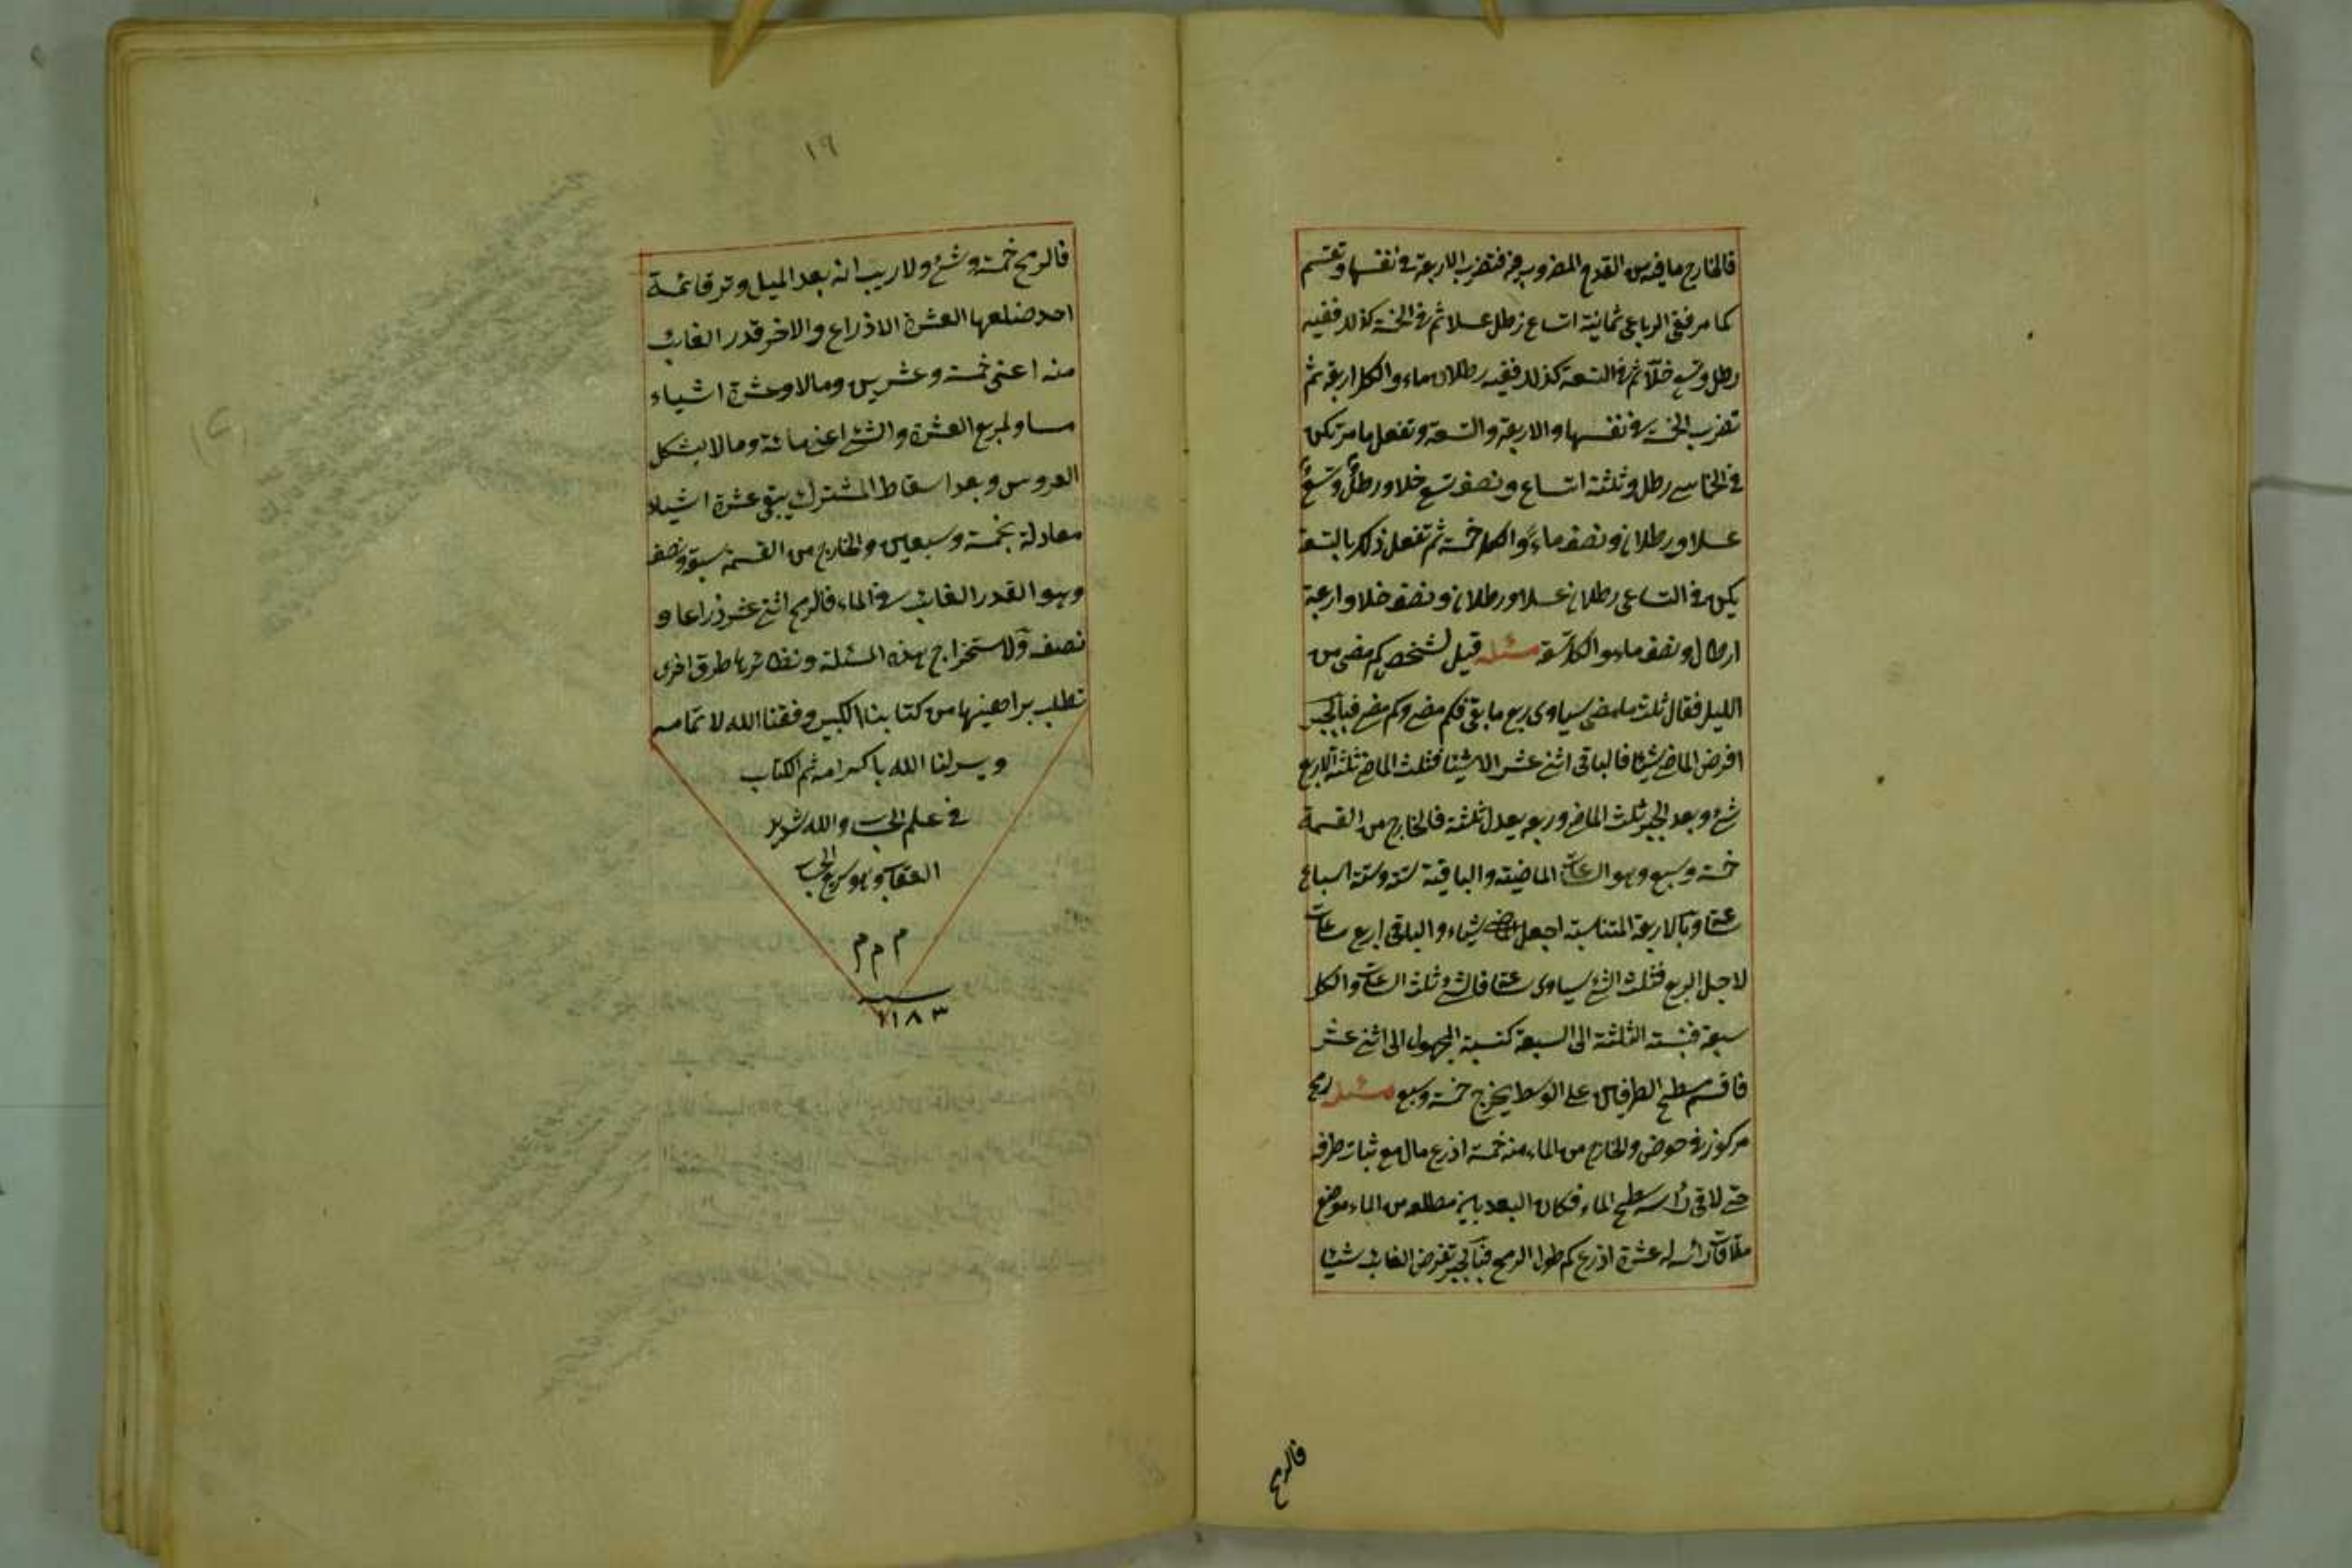 فالخارج ما فيه من القدح المضروب فيه فتضرب الاربعة فى نفسها وتقسم
كما مر ففى الرباعى ثمانية اتساع رطل عسلا ثم فى الخمسة كذلك ففيه
رطل وتسع خلا ثم فى التسعة كذلك ففيه رطلان ماء والكل اربعة ثم
تضرب الخمسة فى نفسها والاربعة والتسعة وتفعل ما مر تكن
فى الخماسى رطل وثلثة اتساع ونصف تسع خلا ورطل وتسع
عسلا ورطلان ونصف ماء والكل خمسة ثم تفعل ذلك بالتسعة
يكن فى التساعى رطلان عسلا ورطلان ونصف خلا واربعة
ارطال ونصف ماء والكل تسعة مسئلة قيل لشخص كم مضى من
الليل فقال ثلث ما مضى يساوى ربع ما بقى فكم مضى وكم بقى فبالجبر
افرض الماضى شيئا فالباقى اثنى عشر الا شيئا فثلث الماضى ثلثة الا ربع
شئ وبعد الجبر ثلث الماضى وربعه يعدل ثلثة فالخارج من القسمة
خمسة وسبع وهو الساعات الماضية والباقية ستة وستة اسباع
ساعة وبالاربعة المتناسبة اجعل الماضى شيئا والباقى اربع ساعات
لاجل الربع فثلث الشئ يساوى ساعة فالشئ ثلث الساعات والكل
سبعة فنسبة الثلثة الى السبعة كنسبة المجهول الى اثنى عشر
فاقسم مسطح الطرفين على الوسط يخرج خمسة وسبع مسئلة رمح
مركوز فى حوض والخارج من الماء منه خمسة اذرع مال مع ثبات طرفه
حتى لاقى رأسه سطح الماء فكان البعد بين مطلعه من الماء موضع
ملاقات رأسه له عشرة اذرع كم طول الرمح فبالجبر تفرض الغائب شيئا
فالرمح
١٩
فالرمح خمسة وشئ ولا ريب انه بعد الميل وتر قائمة
احد ضلعها العشرة الاذراع والاخر قدر الغائب
منه اعنى خمسة وعشرين ومالا وعشرة اشياء
مساو لمربع العشرة والشئ اعنى مائة ومالا بشكل
العروس وبعد اسقاط المشترك يبقى عشرة اشياء
معادلة بخمسة وسبعين والخارج من القسمة سبعة ونصف
وهو القدر الغائب فى الماء فالرمح اثنى عشر ذراعا و
نصف ولاستخراج هذه المسئلة ونظائرها طرق اخرى
تطلب براهينها من كتابنا الكبير وفقنا الله لاتمامه
ويسر لنا الله باكرامه ثم الكتاب
فى علم الحساب والله شديد
العقاب وهو سريع الحساب
م م م
سنه
١١٨٣